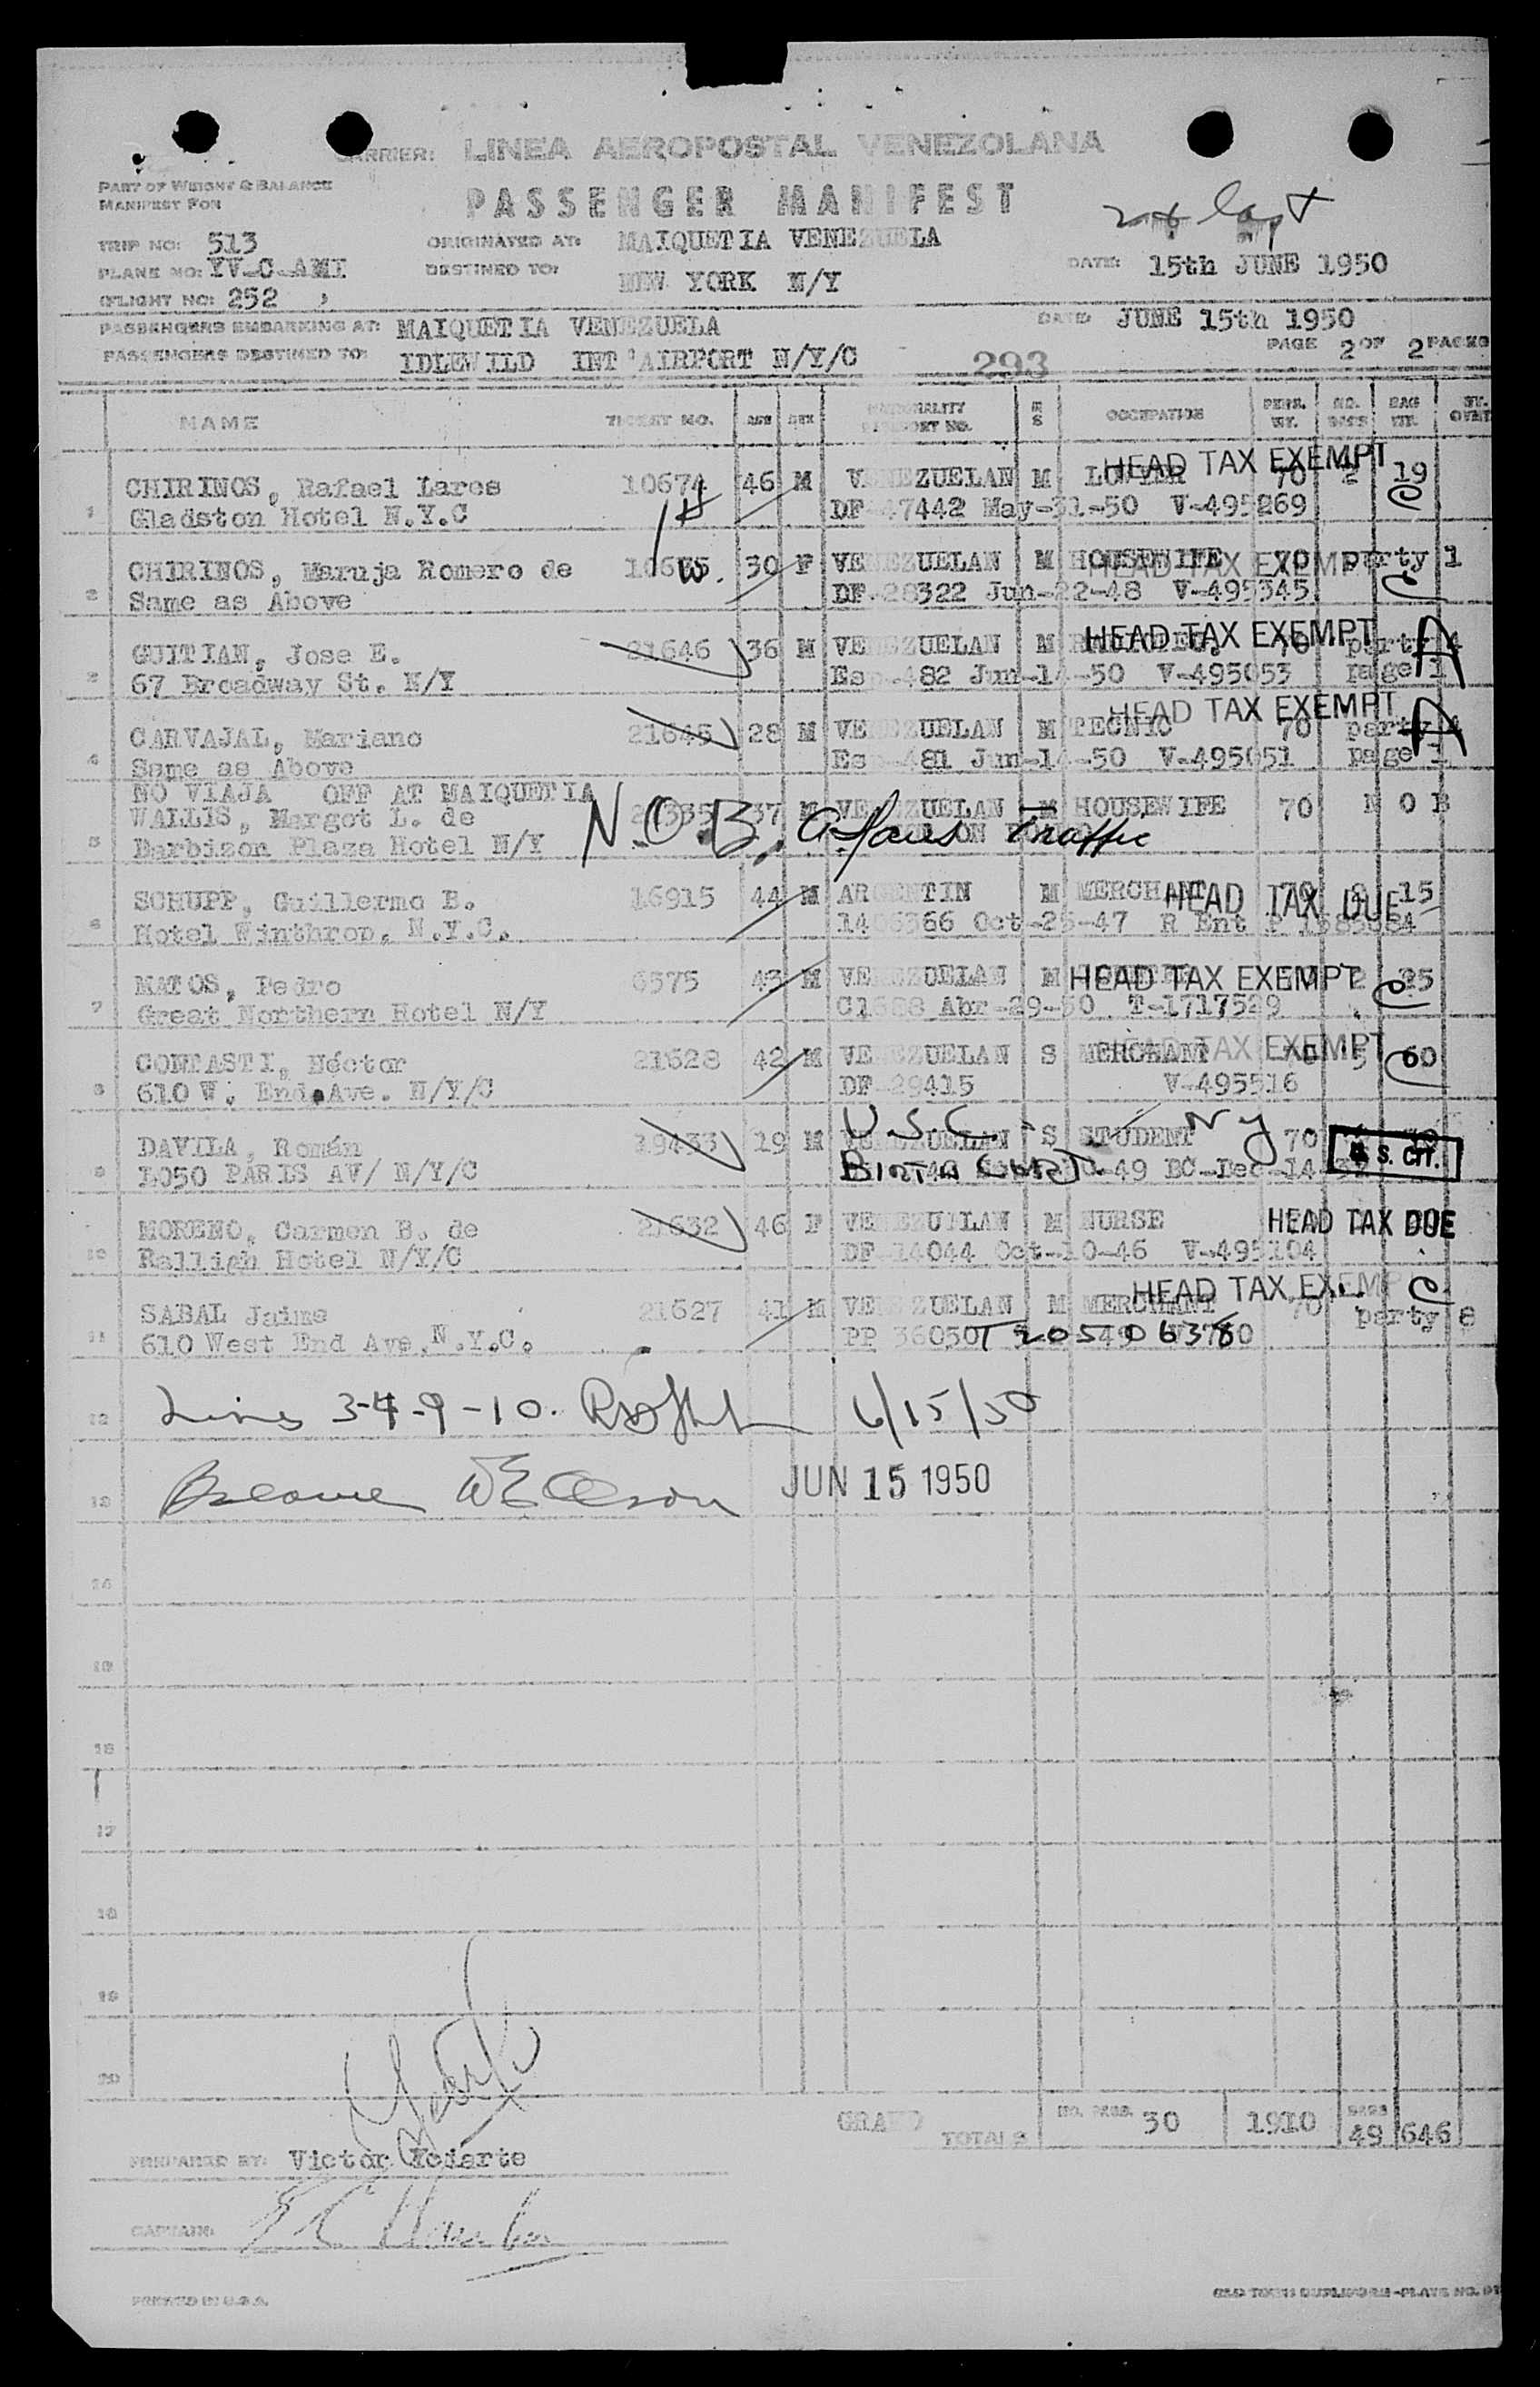 CARRIER: LINEA AEROPOSTAL VENEZOLANA
PART OF WEIGHT & BALANCE
MANIFEST FOR
PASSENGER MANIFEST
TRIP NO: 513
ORIGINATED AT: MAIQUETIA VENEZUELA
PLANE NO: YV-C-AMI
DESTINED TO: NEW YORK N/Y
DATE: 15th JUNE 1950
FLIGHT NO: 252
PASSENGERS EMBARKING AT: MAIQUETIA VENEZUELA
DATE: JUNE 15th 1950
PASSENGERS DESTINED TO: IDLEWILD INT'AIRPORT N/Y/C
293
PAGE 2 OF 2 PAGES
NAME TICKET NO. AGE SEX NATIONALITY PASSPORT NO. M S OCCUPATION PERS. WT. NO. BAGS BAG WT.
HEAD TAX EXEMPT
1 CHIRINOS, Rafael Lares 10674 46 M VENEZUELAN M 70 2 19
Gladston Hotel N.Y.C DF-47442 May-31-50 V-495269
2 CHIRINOS, Maruja Romero de 10675 W. 30 F VENEZUELAN M HOUSEWIFE HEAD TAX EXEMPT 70 party 1
Same as Above DF-28322 Jun-22-48 V-495345
3 GUITIAN, Jose E. 21646 36 M VENEZUELAN M HEAD TAX EXEMPT 70 party 4 A
67 Broadway St. N/Y Esp-482 Jun-14-50 V-495053 page 1
HEAD TAX EXEMPT
4 CARVAJAL, Mariano 21645 28 M VENEZUELAN M TECNIC 70 party 4 A
Same as Above Esp-481 Jun-14-50 V-495051 page 1
NO VIAJA OFF AT MAIQUETIA
5 WALLIS, Margot L. de 37 VENEZUELAN M HOUSEWIFE 70 N O B
Barbizon Plaza Hotel N/Y N.O.B. Traffic
6 SCHUPP, Guillermo B. 16915 44 M ARGENTIN M MERCHANT HEAD TAX DUE 70 2 15
Hotel Winthrop, N.Y.C. Oct-25-47 R Ent P
7 MATOS, Pedro 6575 43 M VENEZUELAN M HEAD TAX EXEMPT 2 25
Great Northern Hotel N/Y Abr-29-50 T-1717529
8 CONTASTI, Héctor 21628 42 M VENEZUELAN S MERCHANT HEAD TAX EXEMPT 70 5 60
610 W. End Ave. N/Y/C DF-29415 V-495516
U.S.C. NY
9 DAVILA, Román 19433 19 M VENEZUELAN S STUDENT 70
1050 PARIS AV/ N/Y/C BIRTH CERT U.S. CIT.
10 MORENO, Carmen B. de 21632 46 F VENEZUELAN M NURSE HEAD TAX DUE
Ralligh Hotel N/Y/C DF-14044 Oct-10-46 V-495104
HEAD TAX EXEMP
11 SABAL Jaime 21627 41 M VENEZUELAN M MERCHANT 70 party 8
610 West End Ave. N.Y.C. PP 36050
12 Lines 3-4-9-10. 6/15/50
13 Balance JUN 15 1950
14
15
16
17
18
19
20
GRAND TOTALS NO. PASS. 30 1910 BAGS 49 646
PREPARED BY: Victor
CAPTAIN:
PRINTED IN U.S.A.